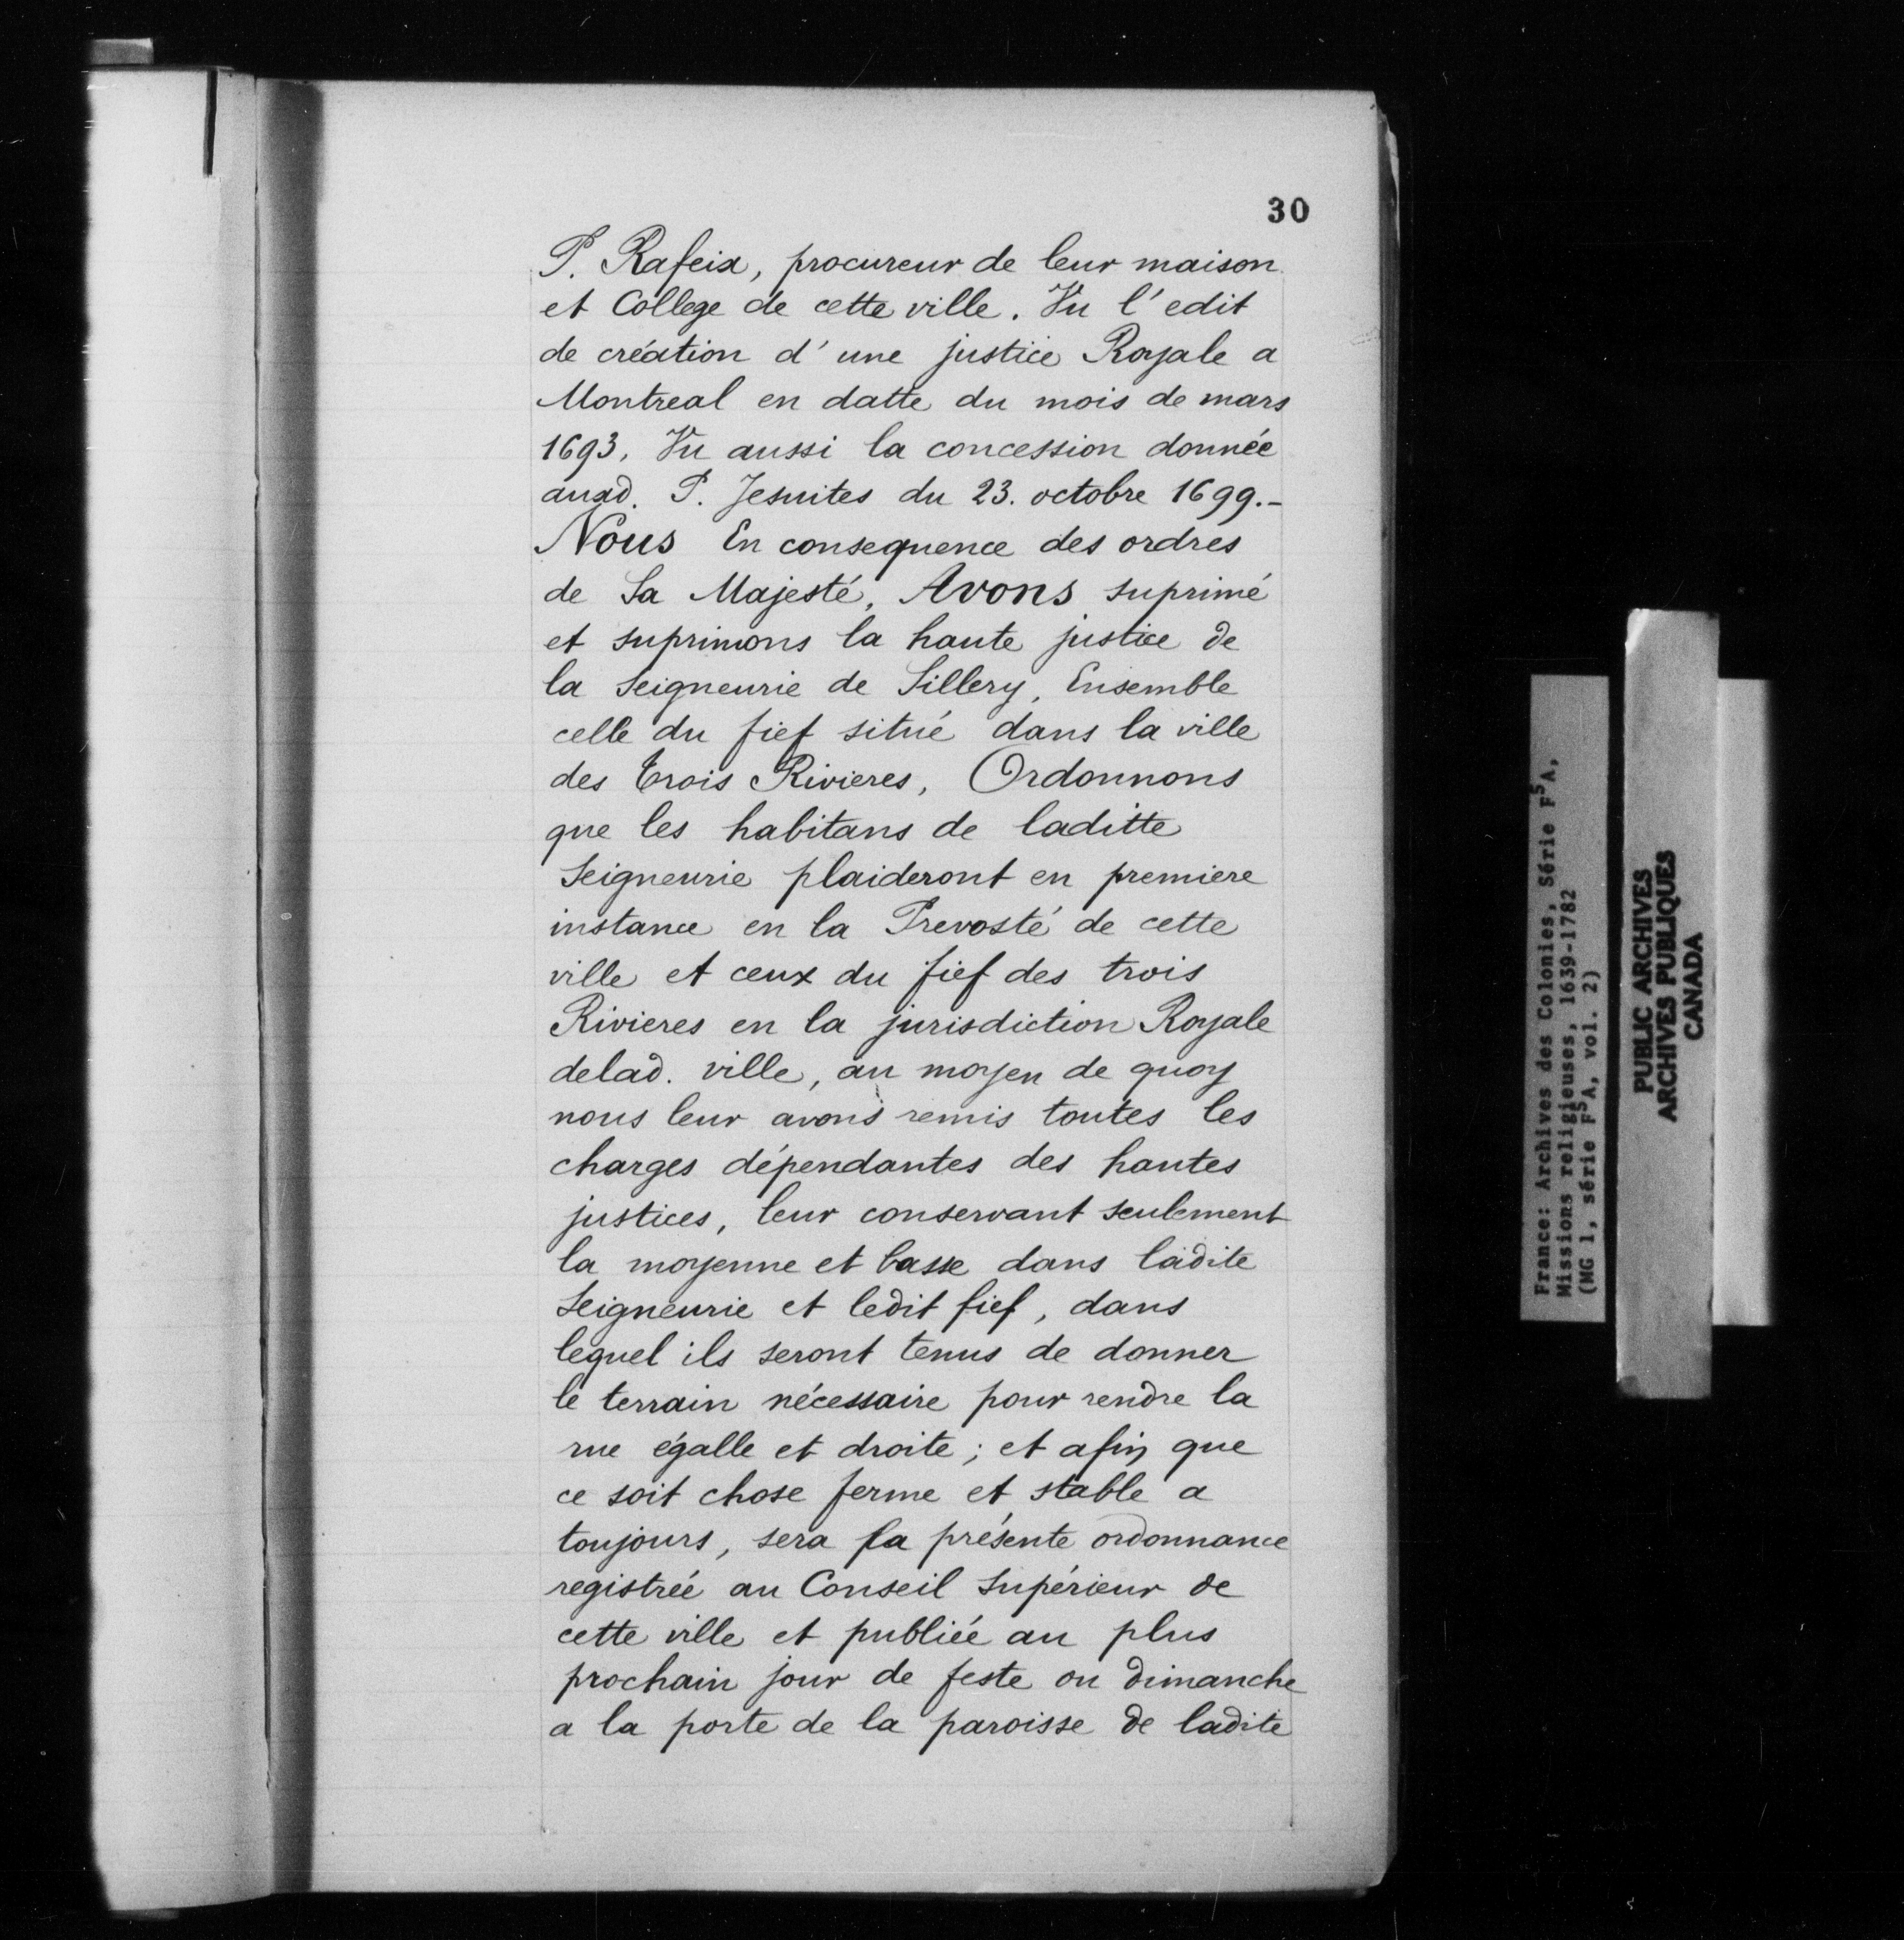 30
P. Rafeix, procureur de leur maison
et College de cette ville. Vu l'edit
de création d'une justice Royale a
Montreal en datte du mois de mars
1693, Vu aussi la concession donnée
auxd. P. Jesuites du 23. octobre 1699.-
Nous En consequence des ordres
de Sa Majesté, Avons suprimé
et suprimons la haute justice de
la Seigneurie de Sillery, Ensemble
celle du fief situé dans la ville
des trois Rivieres, Ordonnons
que les habitans de laditte
Seigneurie plaideront en premiere
instance en la Prevosté de cette
ville et ceux du fief des trois
Rivieres en la jurisdiction Royale
delad. ville, au moyen de quoy
nous leur avons remis toutes les
charges dépendantes des hautes
justices, leur conservant seulement
la moyenne et basse dans ladite
Seigneurie et ledit fief, dans
lequel ils seront tenus de donner
le terrain nécessaire pour rendre la
rue égalle et droite; et afin que
ce soit chose ferme et stable a
toujours, sera la présente ordonnance
registrée au Conseil Supérieur de
cette ville et publiée au plus
prochain jour de feste ou dimanche
a la porte de la paroisse de ladite
France: Archives des Colonies, Série F5A,
Missions religieuses, 1639-1782
(MG 1, série F5A, vol. 2)
PUBLIC ARCHIVES
ARCHIVES PUBLIQUES
CANADA